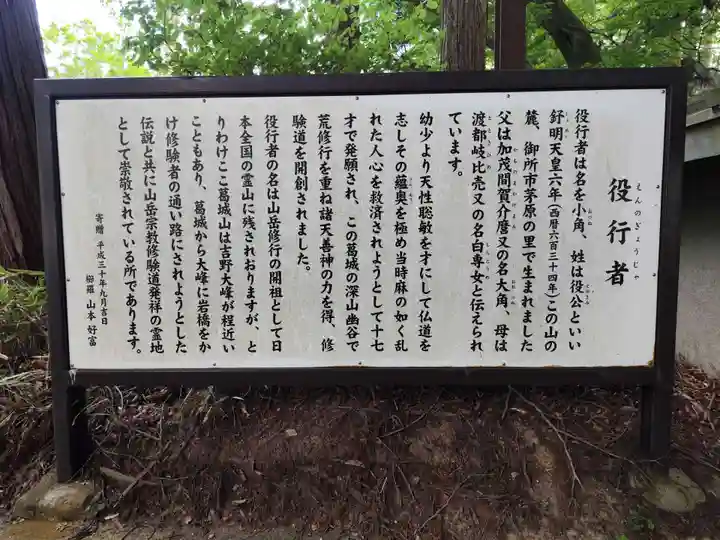 役行者
えんのぎょうじゃ
役行者は名を小角、姓は役公といい
舒明天皇六年(西暦六百三十四年)この山の
麓、御所市茅原の里で生まれました
父は加茂間賀介麿又の名大角、母は
渡都岐比売又の名白専女と伝えられ
ています。
幼少より天性聡敏を才にして仏道を
志しその蘊奥を極め当時麻の如く乱
れた人心を救済されようとして十七
才で発願され、この葛城の深山幽谷で
荒修行を重ね諸天善神の力を得、修
験道を開創されました。
役行者の名は山岳修行の開祖として日
本全国の霊山に残されおりますが、と
りわけここ葛城山は吉野大峰が程近い
こともあり、葛城から大峰に岩橋をか
け修験者の通い路にされようとした
伝説と共に山岳宗教修験道発祥の霊地
として崇敬されている所であります。
寄贈 平成三十年九月吉日
櫛羅 山本 好富